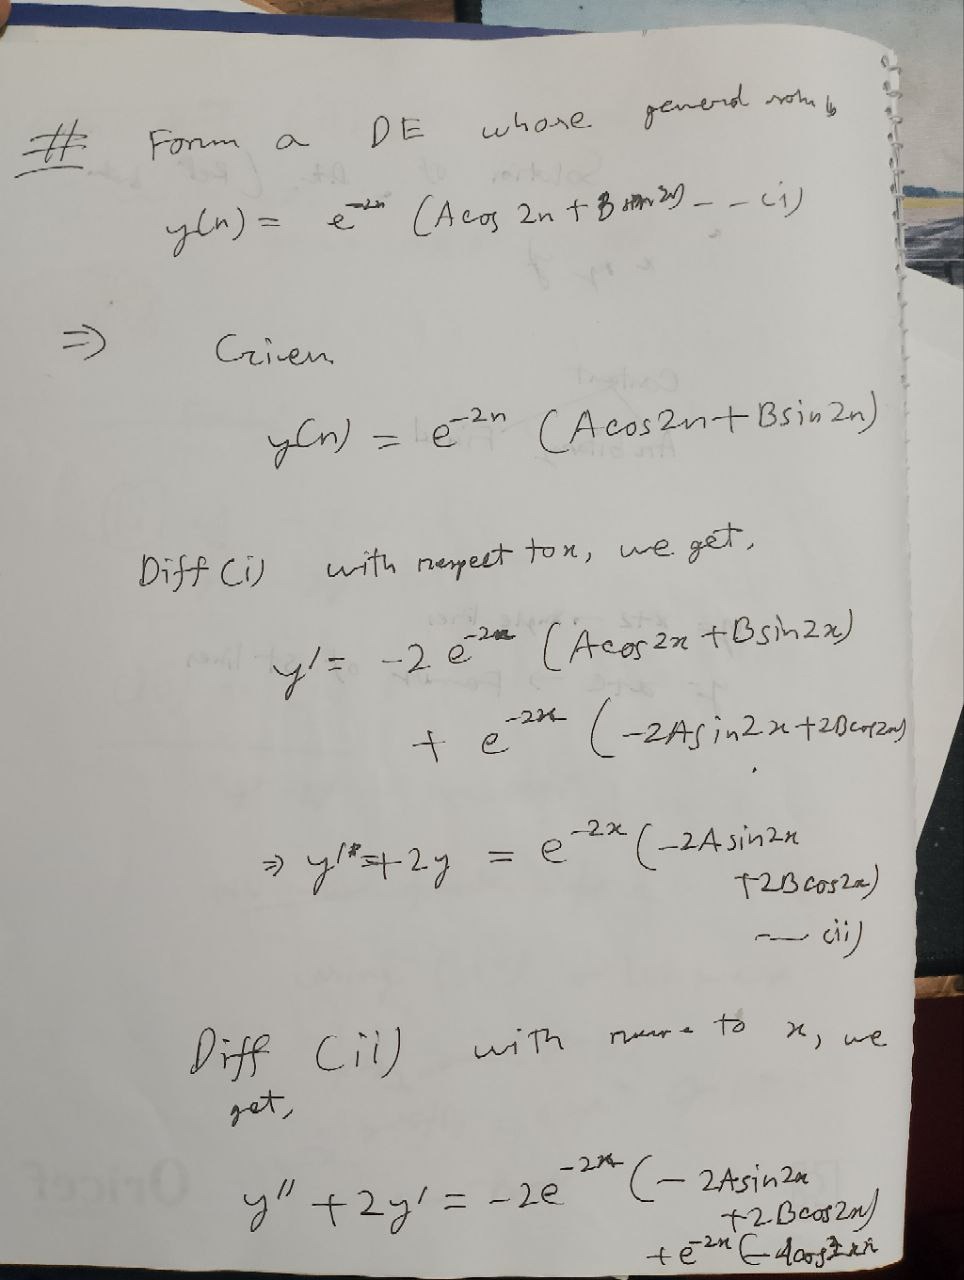 # Form a DE whose general soln is
y(x) = e^-2x (A cos 2x + B sin 2x) - - (i)
⇒ Given
y(x) = e^-2x (A cos 2x + B sin 2x)
Diff (i) with respect to x, we get,
y' = -2 e^-2x (A cos 2x + B sin 2x)
+ e^-2x (-2A sin 2x + 2B cos 2x)
⇒ y' + 2y = e^-2x (-2A sin 2x
+2B cos 2x)
— (ii)
Diff (ii) with to x, we
get,
y'' + 2y' = -2e^-2x (-2A sin 2x
+2B cos 2x)
+ e^-2x (-